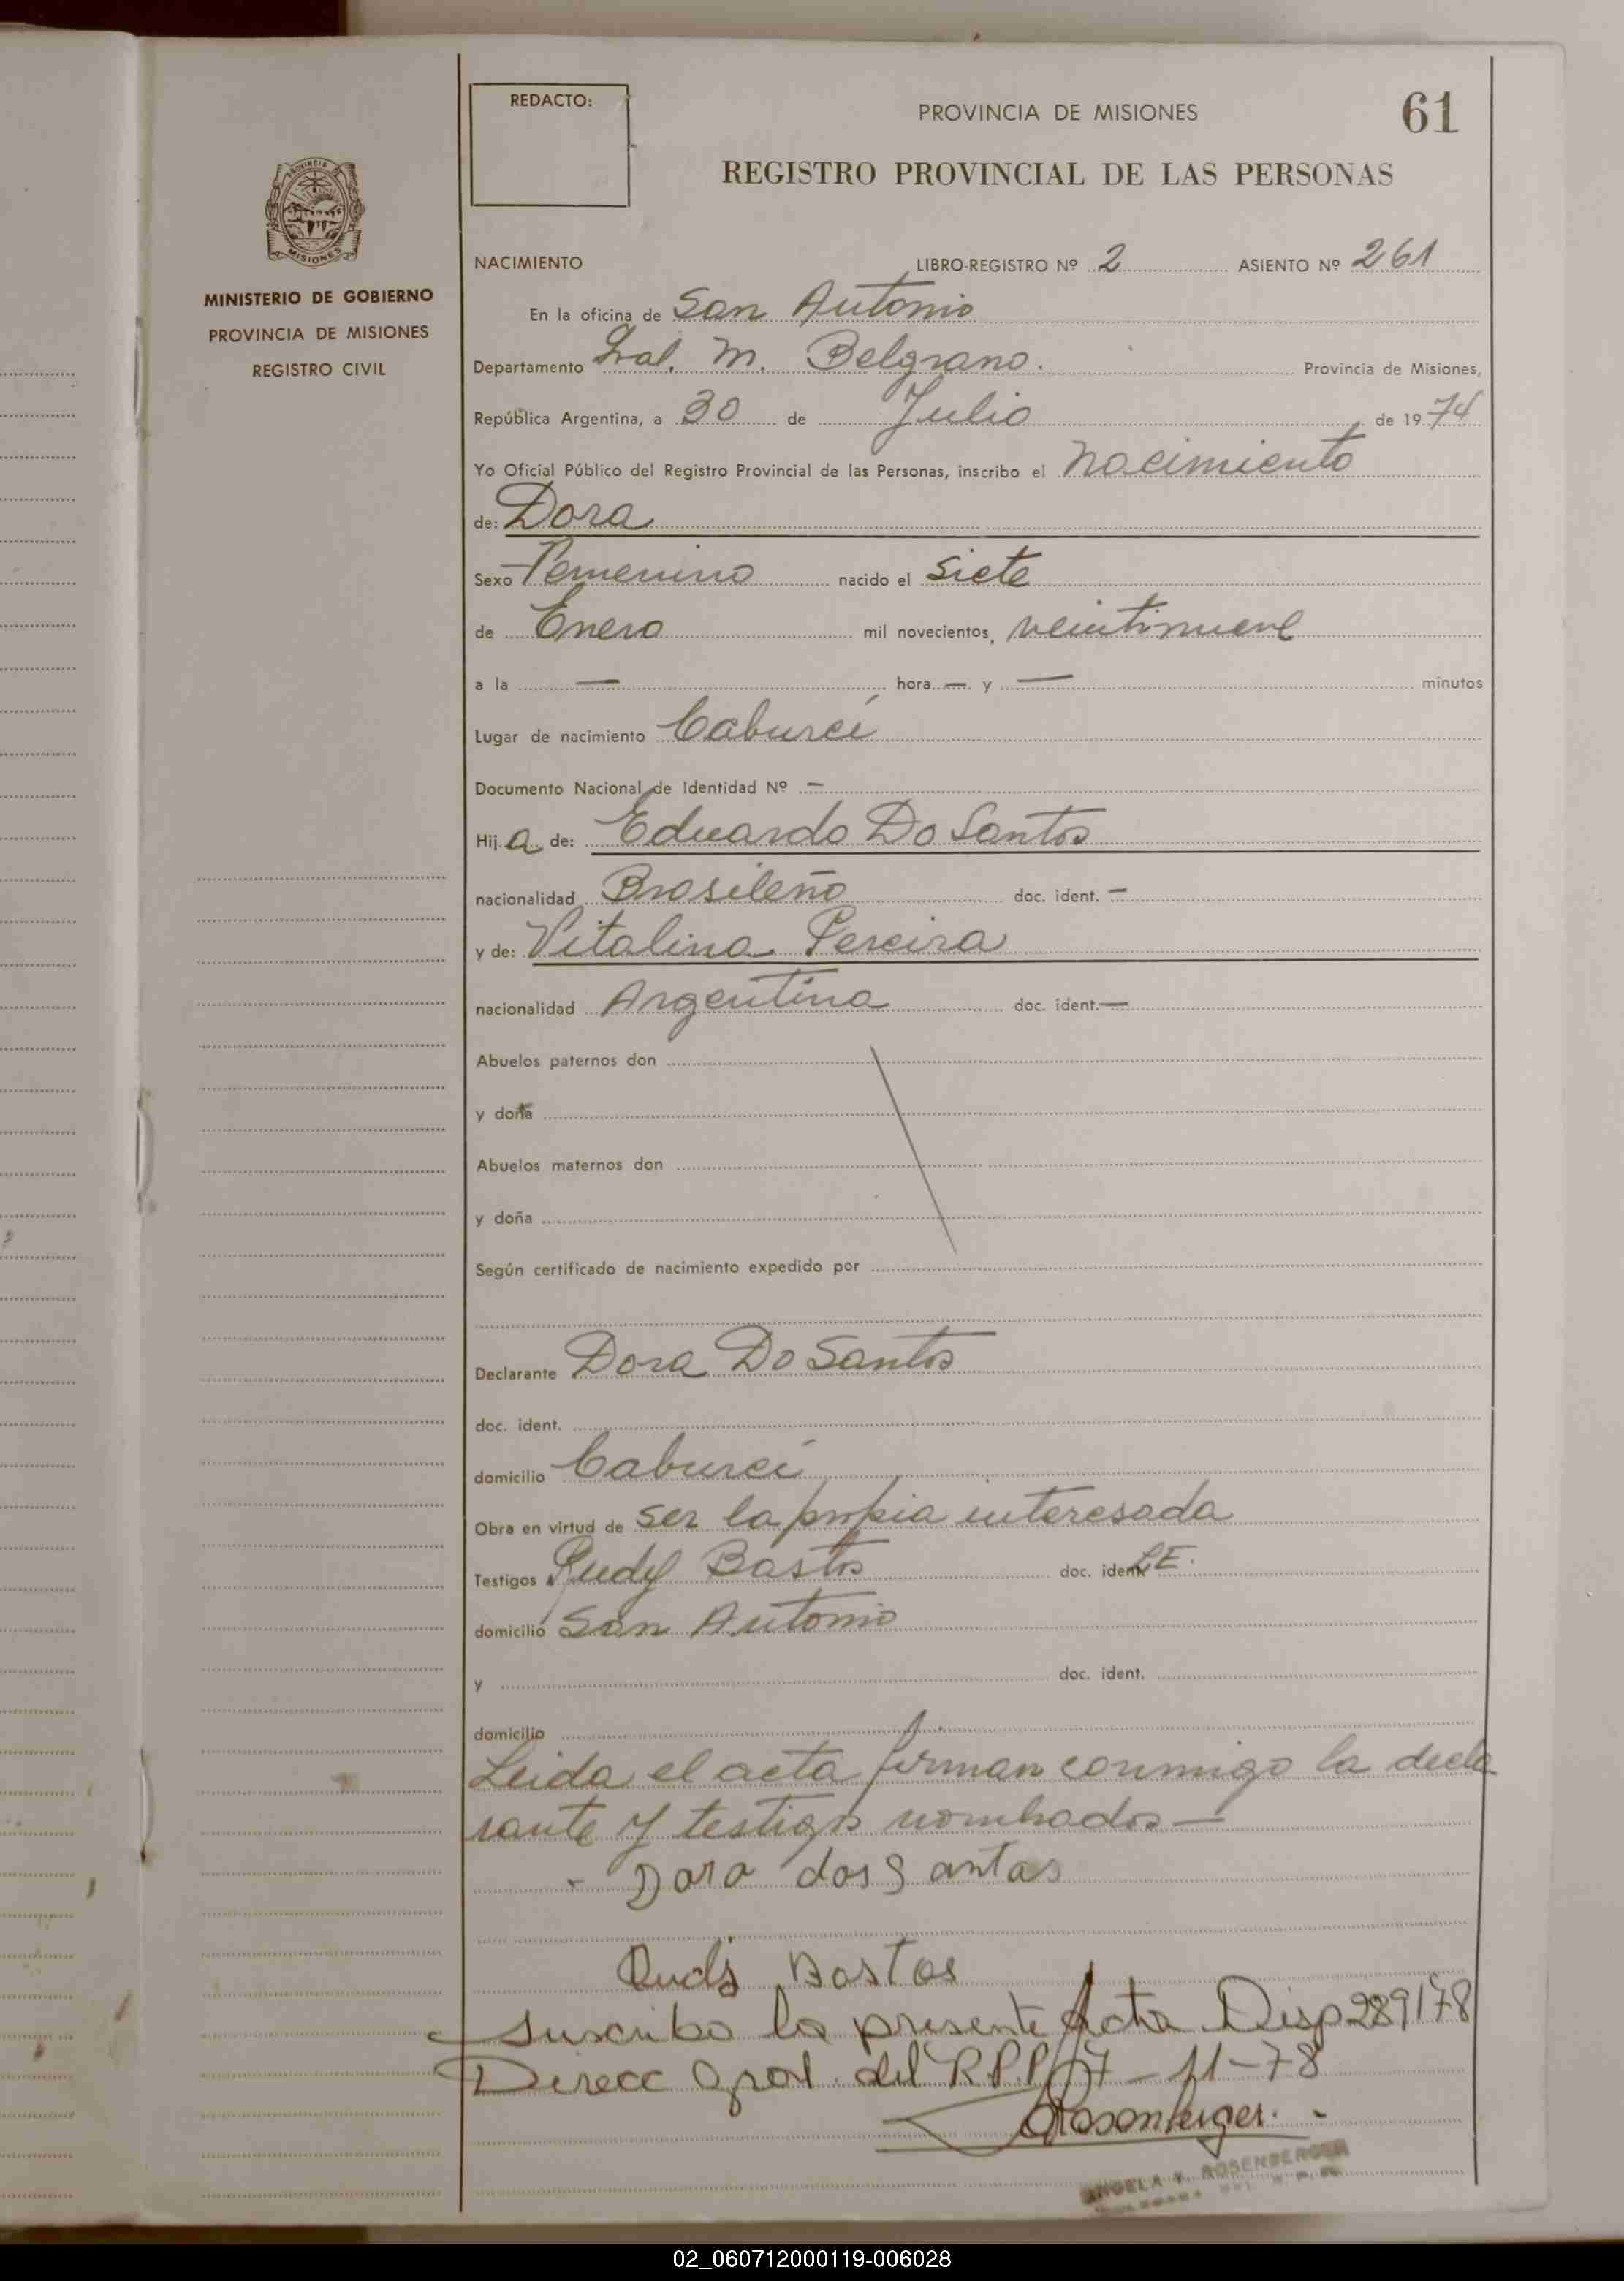 REDACTO:
PROVINCIA DE MISIONES
61
REGISTRO PROVINCIAL DE LAS PERSONAS
PROVINCIA
MISIONES
MINISTERIO DE GOBIERNO
PROVINCIA DE MISIONES
REGISTRO CIVIL
NACIMIENTO LIBRO-REGISTRO Nº 2 ASIENTO Nº 261
En la oficina de San Antonio
Departamento Gral. M. Belgrano. Provincia de Misiones,
República Argentina, a 30 de Julio de 1974
Yo Oficial Público del Registro Provincial de las Personas, inscribo el nacimiento
de: Dora
Sexo Femenino nacido el siete
de Enero mil novecientos, veintinueve
a la — hora — y — minutos
Lugar de nacimiento Caburei
Documento Nacional de Identidad Nº —
Hij a de: Eduardo Do Santos
nacionalidad Brasileño doc. ident. —
y de: Vitalina Pereira
nacionalidad Argentina doc. ident. —
Abuelos paternos don
y doña
Abuelos maternos don
y doña
Según certificado de nacimiento expedido por
Declarante Dora Do Santos
doc. ident.
domicilio Caburei
Obra en virtud de ser la propia interesada
Testigos Rudy Bastos doc. ident. LE.
domicilio San Antonio
y doc. ident.
domicilio
Leida el acta firman conmigo la decla-
rante y testigos nombados —
Dora dos Santas
Rudy Bastos
Suscribo la presente Acta Disp 289/78
Direcc Gral. del R.P.P. 17-11-78
Rosenberger.
ANGELA V. ROSENBERGER
02_060712000119-006028